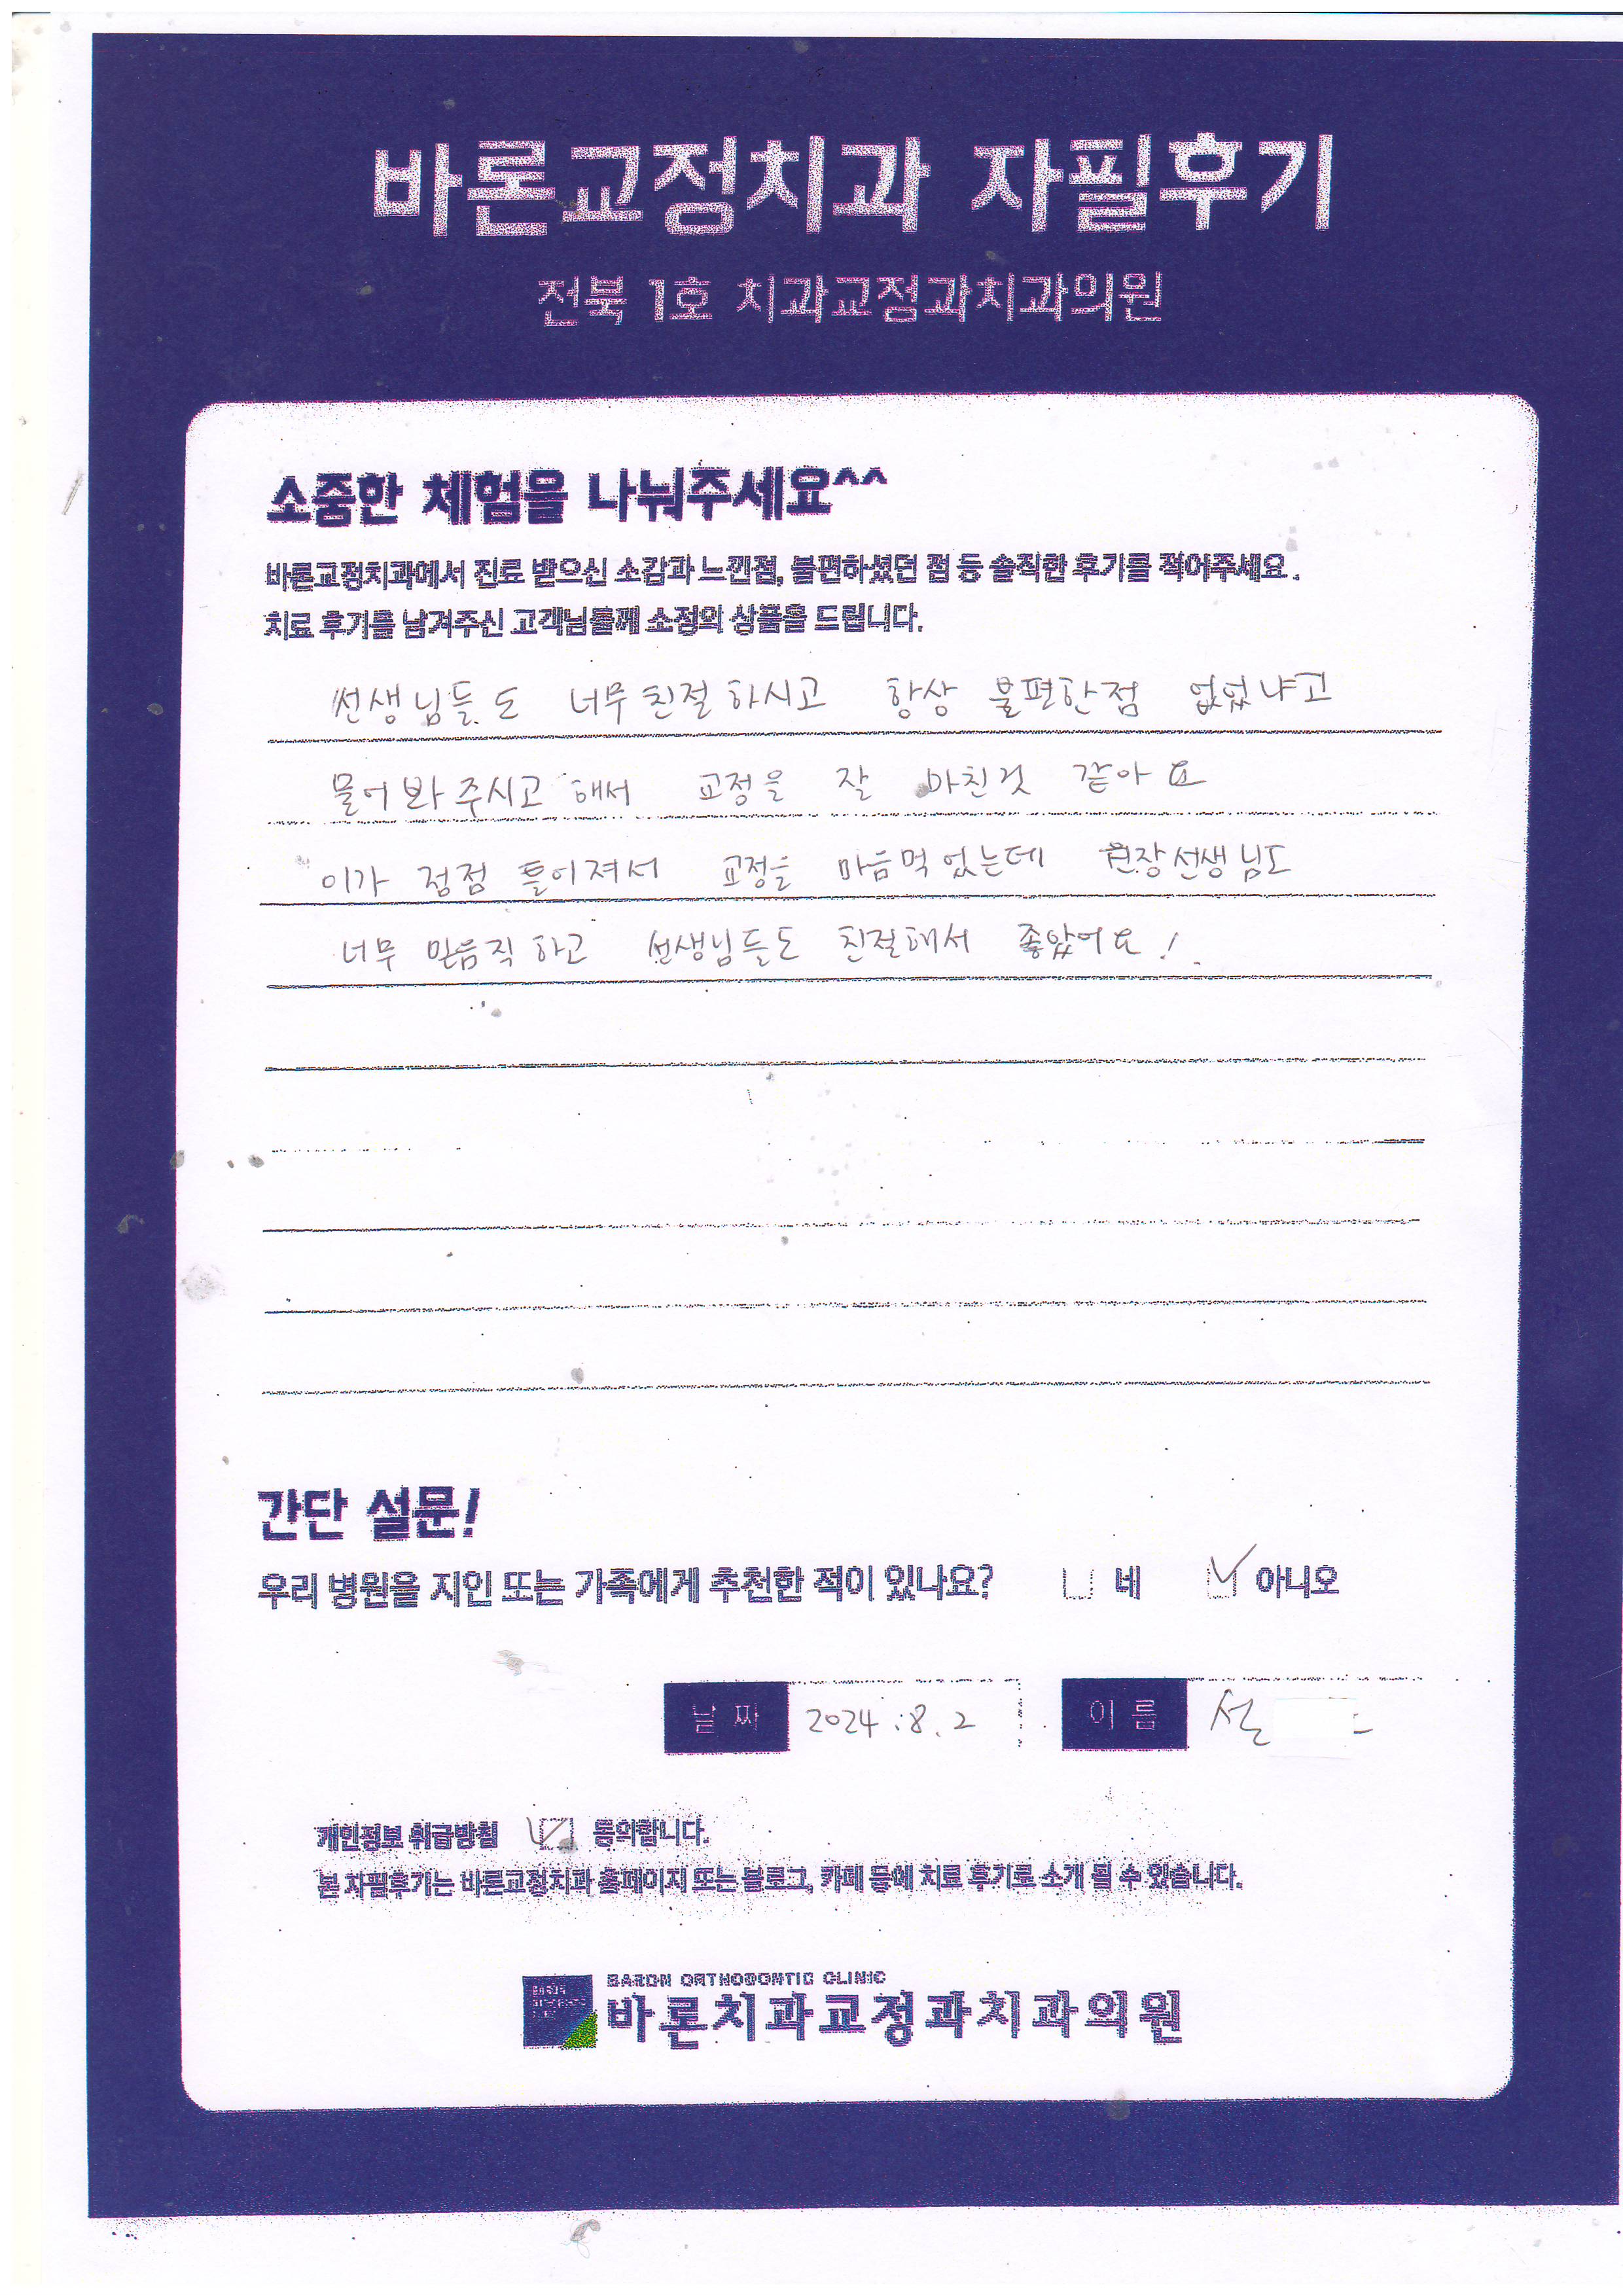 바론교정치과 자필후기
전북 1호 치과교정과치과의원
소중한 체험을 나눠주세요^^
바론교정치과에서 진료 받으신 소감과 느낀점, 불편하셨던 점 등 솔직한 후기를 적어주세요.
치료 후기를 남겨주신 고객님들께 소정의 상품을 드립니다.
선생님들도 너무 친절하시고 항상 불편한점 없었냐고
물어봐 주시고 해서 교정을 잘 마친것 같아요
이가 점점 틀어져서 교정을 마음먹었는데 원장선생님도
너무 믿음직하고 선생님들도 친절해서 좋았어요!
간단 설문!
우리 병원을 지인 또는 가족에게 추천한 적이 있나요? 네 아니오
날짜 2024.8.2 이름 설
개인정보 취급방침 동의합니다.
본 자필후기는 바론교정치과 홈페이지 또는 블로그, 카페 등에 치료 후기로 소개 될 수 있습니다.
BARON ORTHODONTIC CLINIC
바론치과교정과치과의원